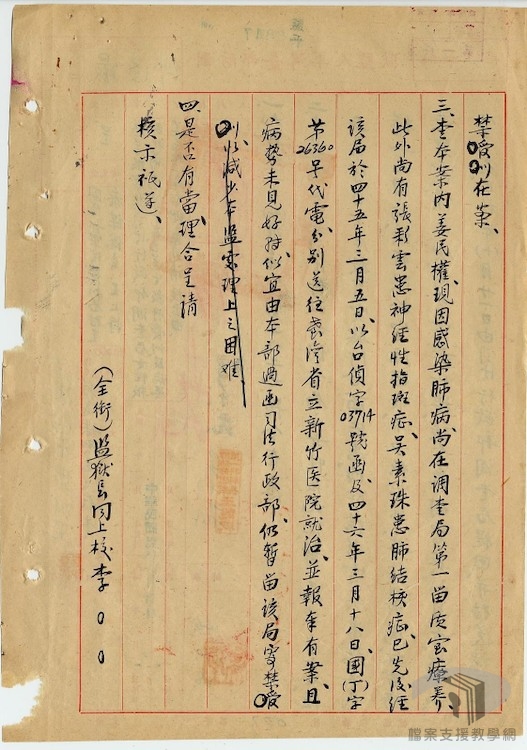 禁閉在案、
三、查本案內姜民權現因感染肺病尚在調查局第一留質室療養、
此外尚有張彩雲患神經性指斑症、吳素珠患肺結核症、已先後經
該局於四十五年三月五日、以台偵字03714號函及四十六年三月十八日、國(丁)字
第26360號代電分別送往臺灣省立新竹医院就治、並報奉有案、且
病勢未見好轉、似宜由本部逕函司法行政部、仍暫留該局寄禁
以減少本監管理上之困難
四、是否有當、理合呈請
核示祗遵、
(全銜)監獄長同上校李00
檔案支援教學網